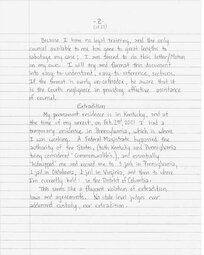 - 2 -
(of 23)
Because I have no legal training, and the only
counsel available to me has gone to great lengths to
sabotage my case; I am forced to do this Letter/Motion
on my own. I will try and format this document
into easy to understand, easy to reference, sections.
If the format is overly un-orthodox, be aware that it
is the Courts negligence in providing effective assistance
of counsel.
Extradition
My permanent residence is in Kentucky, and at
the time of my arrest, on Feb. 2021 I had a
temporary residence in Pennsylvania, which is where
I was working. A Federal Magistrate bypassed the
authority of the States, (both Kentucky and Pennsylvania
being considered "Commonwealths"), and essentially
kidnapped me and moved me to 3 jails in Pennsylvania,
1 jail in Oklahoma, 1 jail in Virginia, and then to where
I'm currently held in the District of Columbia.
This seems like a flagrant violation of extradition
laws and agreements. No state level judges ever
addressed custody, nor extradition.